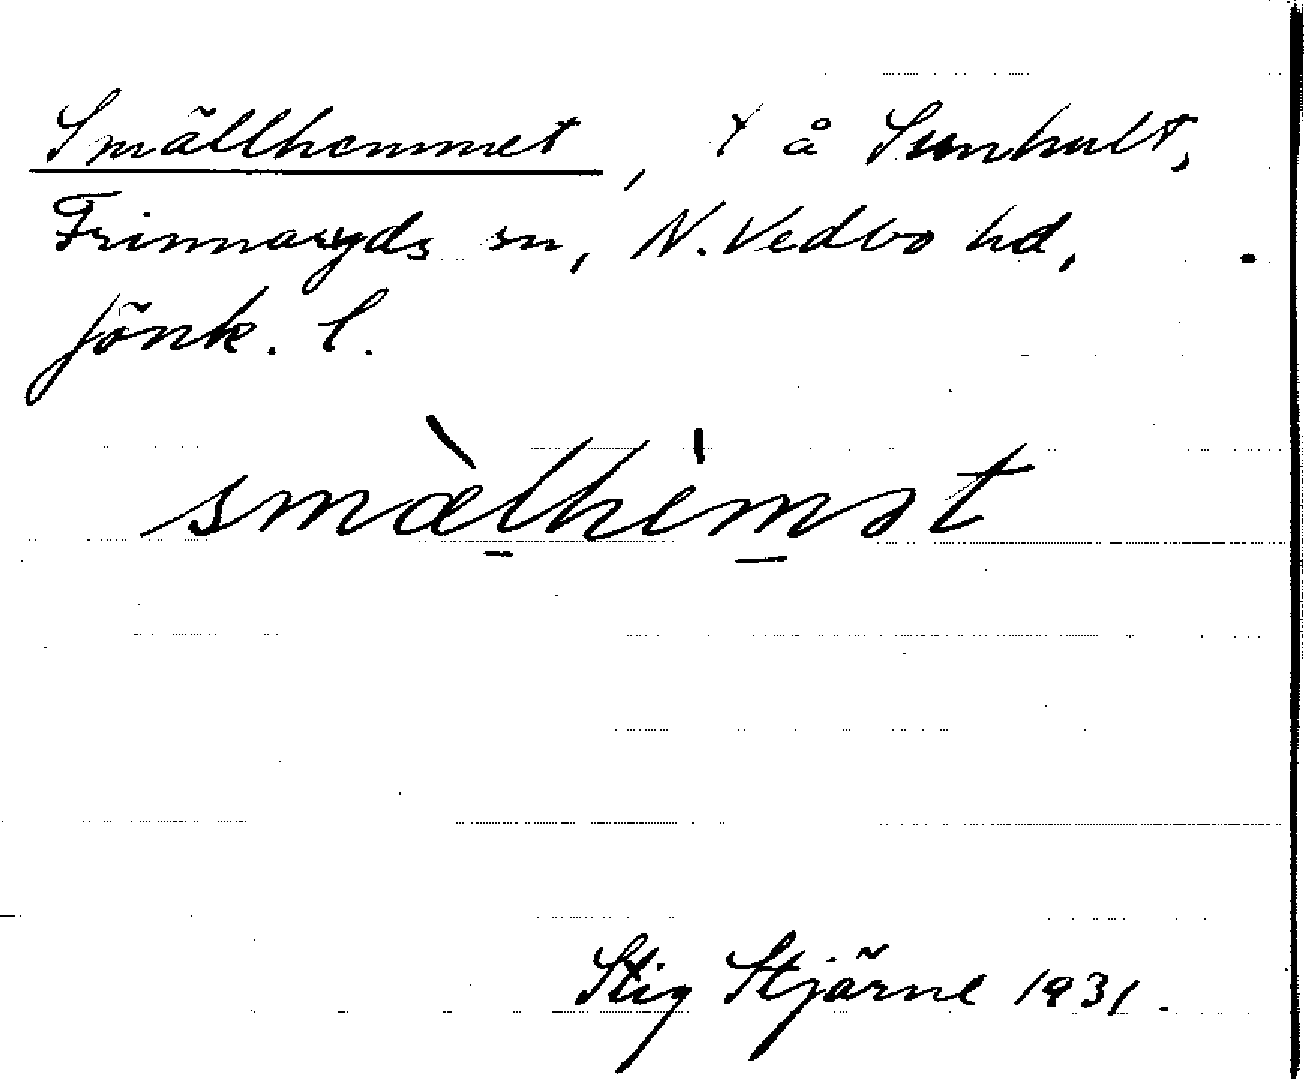 Smällhemmet, t å Sunhult,
Frinnaryds sn, N. Vedbo hd,
Jönk. l.
smæ̀lhemət
Stig Stjärne 1931.